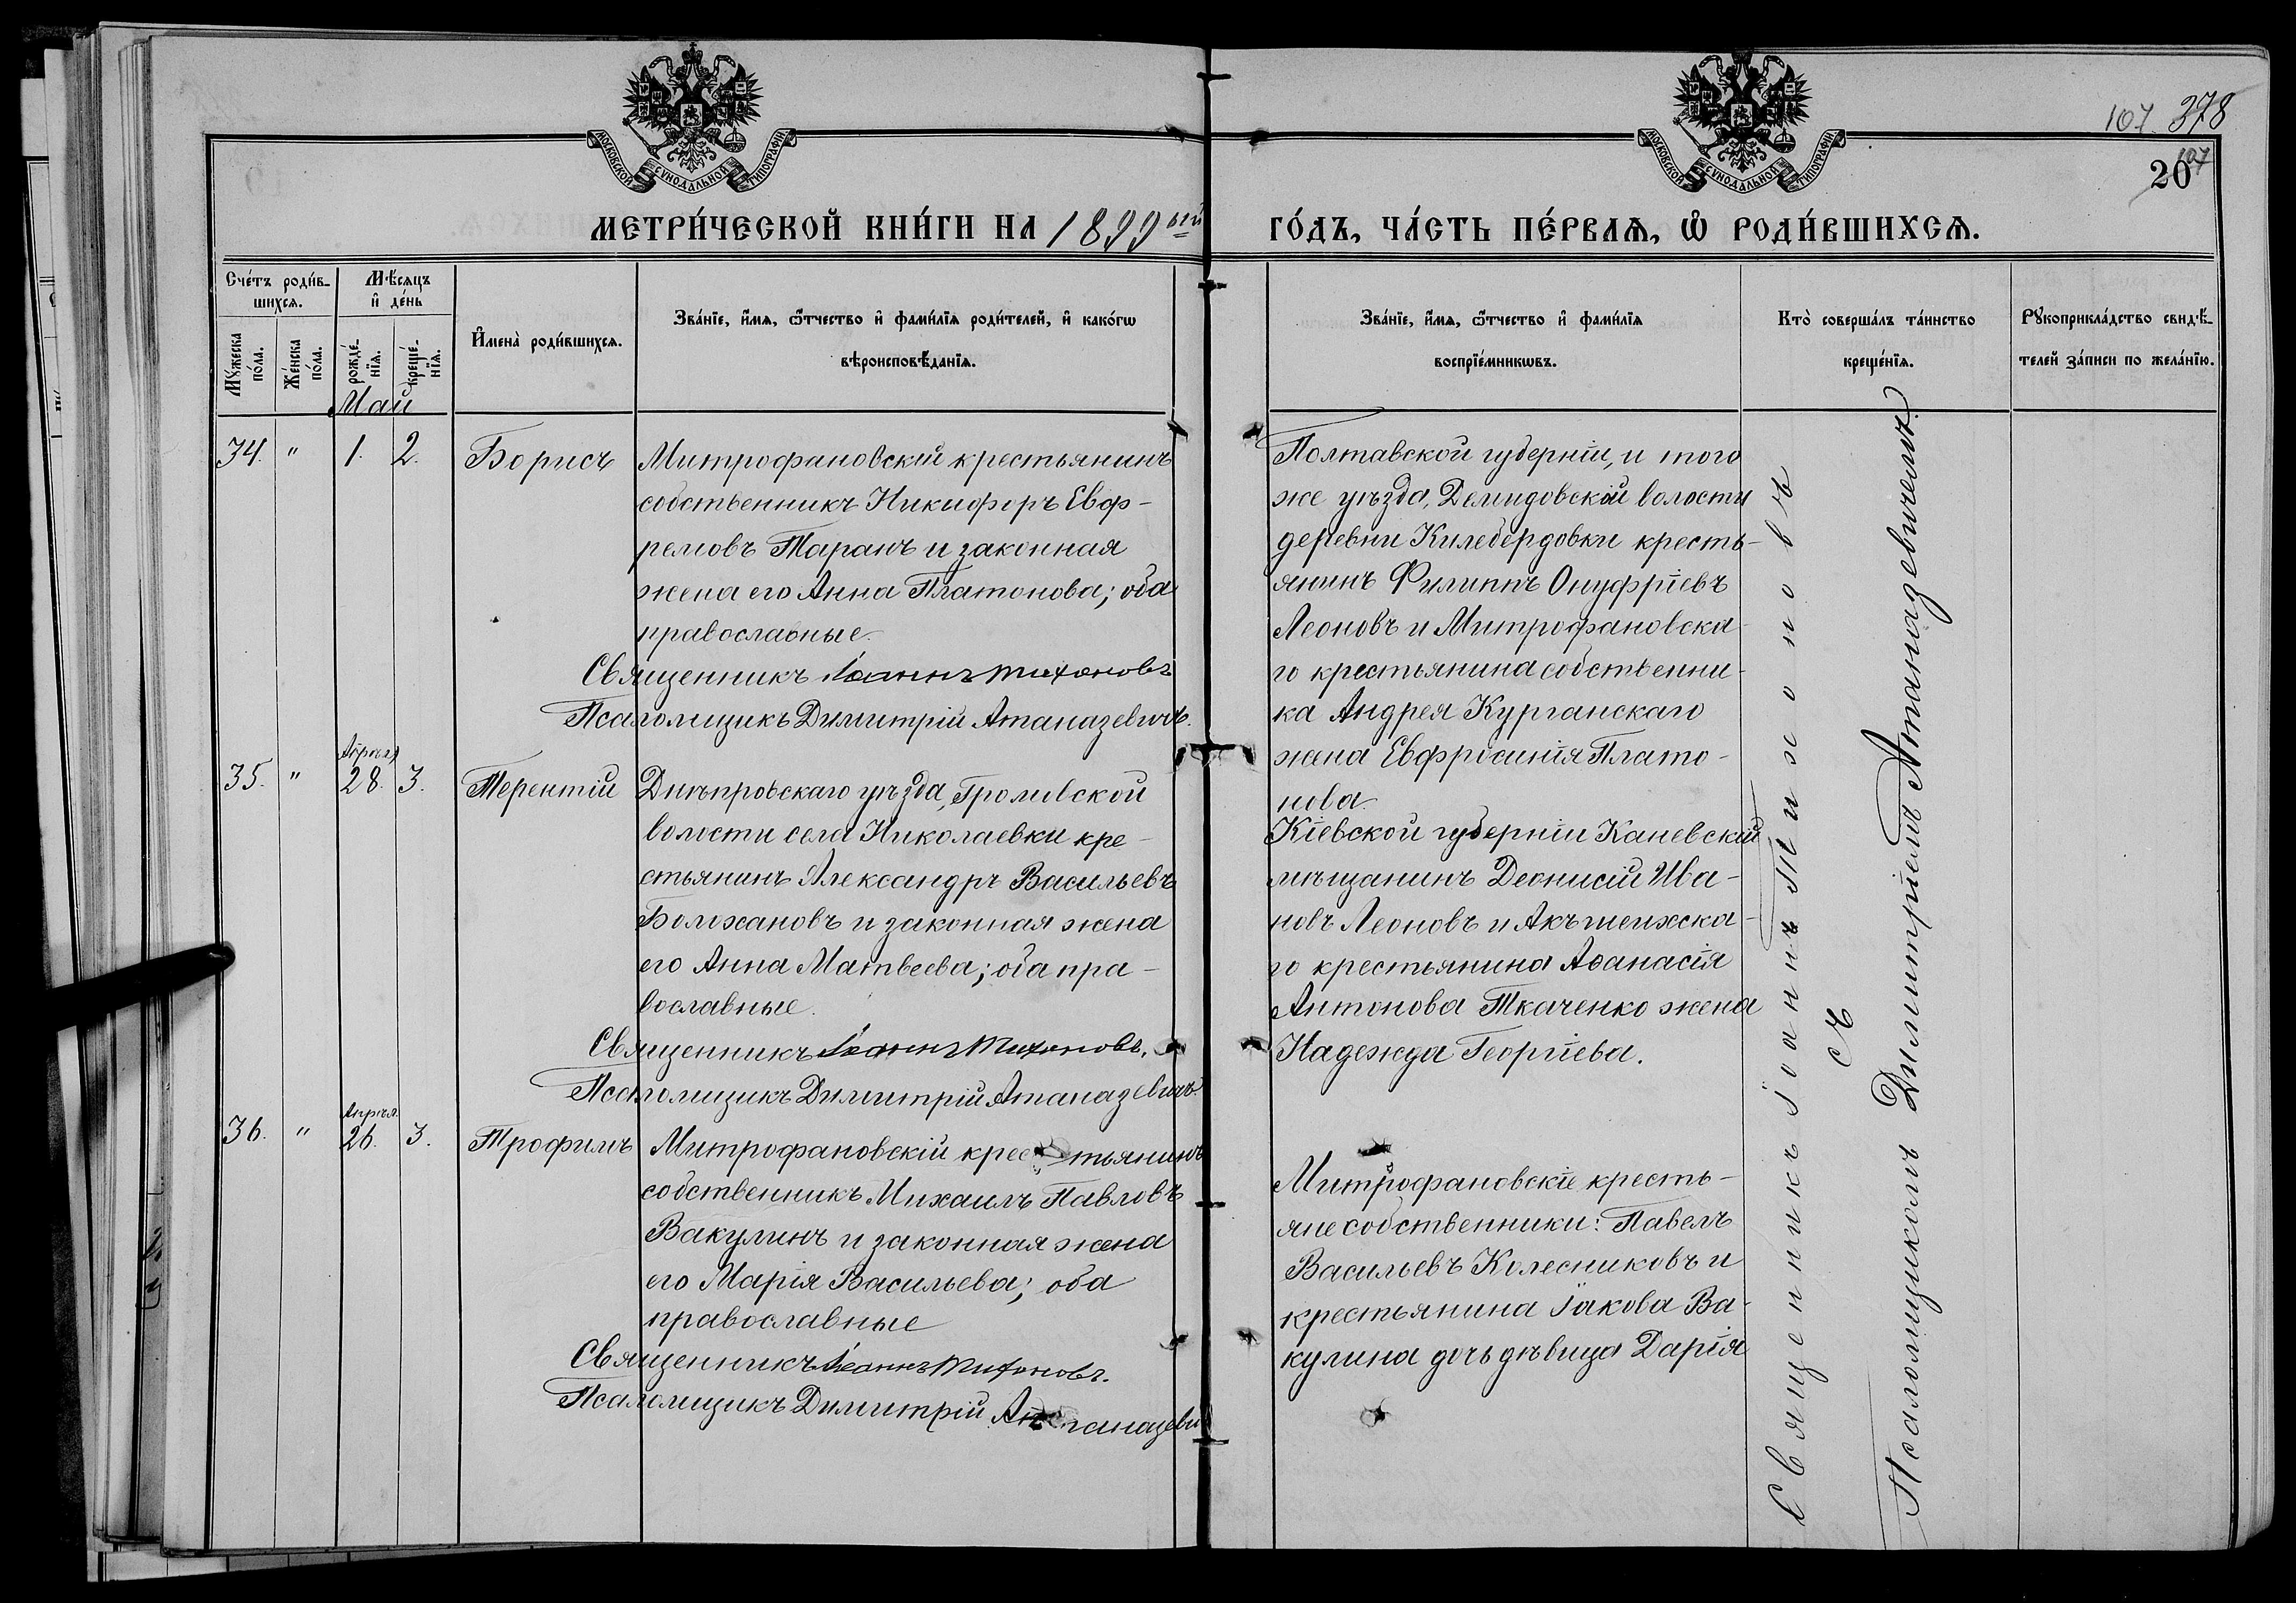 107. 378
107
20
МОСКОВСКОЙ СѴНОДАЛЬНОЙ ТИПОГРАФІИ
МОСКОВСКОЙ СѴНОДАЛЬНОЙ ТИПОГРАФІИ
МЕТРИ́ЧЕСКОЙ КНИ́ГИ НА 1899ый ГО́ДЪ, ЧА́СТЬ ПЕ́РВАѦ, Ѡ҆ РОДИ́ВШИХСѦ.
Сче́тъ роди́в-
шихсѧ.
Мѣ́сѧцъ
и҆ де́нь
Мꙋ́жеска
по́ла.
Же́нска
по́ла.
рожде́-
нїѧ.
креще́-
нїѧ.
И҆мена̀ роди́вшихсѧ.
Зва́нїе, и҆́мѧ, ѻ҆́тчество и҆ фами́лїѧ роди́телей, и҆ како́гѡ
вѣроисповѣ́данїѧ.
Зва́нїе, и҆́мѧ, ѻ҆́тчество и҆ фами́лїѧ
воспрїе́мникѡвъ.
Кто̀ соверша́лъ та́инство
креще́нїѧ.
Рꙋкоприкла́дство свидѣ́-
телей за́писи по жела́нїю.
Май
34. " 1. 2. Борисъ
Митрофановскій крестьянинъ
собственникъ Никифоръ Евф-
ремовъ Таранъ и законная
жена его Анна Платонова; оба
православные.
Священникъ Іоаннъ Тихоновъ
Псаломщикъ Димитрій Атаназевичъ.
Полтавской губерніи, и того
же уѣзда, Демидовской волости
деревни Килебердовки кресть-
янинъ Филиппъ Онуфріевъ
Леоновъ и Митрофановска-
го крестьянина собственни-
ка Андрея Курганскаго
жена Евфросинія Плато-
нова.
Апрѣля
35. " 28. 3. Терентій
Днѣпровскаго уѣзда, Громовской
волости села Николаевки кре-
стьянинъ Александръ Васильевъ
Болжановъ и законная жена
его Анна Матвеева; оба пра-
вославные.
Священникъ Іоаннъ Тихоновъ.
Псаломщикъ Димитрій Атаназевичъ.
Кіевской губерніи Каневскій
мѣщанинъ Деонисій Ива-
новъ Леоновъ и Акъшеихска-
го крестьянина Аѳанасія
Антонова Ткаченко жена
Надежда Георгіева.
Апрѣля
36. " 26. 3. Трофимъ
Митрофановскій крестьянинъ
собственникъ Михаилъ Павловъ
Вакулинъ и законная жена
его Марія Васильева; оба
православные
Священникъ Іоаннъ Тихоновъ.
Псаломщикъ Димитрій Атаназеви
Митрофановскіе кресть-
яне собственники: Павелъ
Васильевъ Колесниковъ и
крестьянина Іакова Ва-
кулина дочь дѣвица Дарія
Священникъ Іоаннъ Тихоновъ
съ
Псаломщикомъ Димитріемъ Атаназевичемъ.